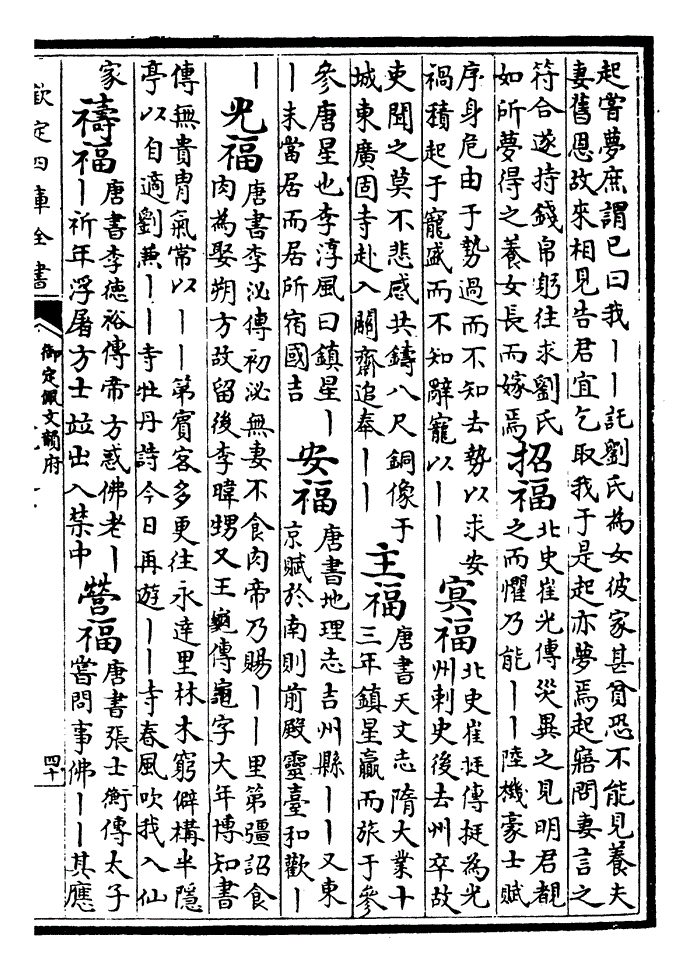 起嘗夢庶謂已曰我丨丨託劉氏為女彼家甚貧恐不能見養夫
妻舊恩故來相見告君宜乞取我于是起亦夢焉起寤問妻言之
符合遂持錢帛躬往求劉氏
如所夢得之養女長而嫁焉
招福
北史崔光傳災異之見明君覩
之而懼乃能丨丨陸機豪士賦
序身危由于勢過而不知去勢以求安
禍積起于寵盛而不知辭寵以丨丨
冥福
北史崔挺傳挺為光
州刺史後去州卒故
吏聞之莫不悲感共鑄八尺銅像于
城東廣固寺赴入關齋追奉丨丨
主福
唐書天文志隋大業十
三年鎮星贏而旅于參
參唐星也李淳風曰鎮星丨
丨未當居而居所宿國吉
安福
唐書地理志吉州縣丨丨又東
京賦於南則前殿靈臺和歡丨
丨
光福
唐書李泌傳初泌無妻不食肉帝乃賜丨丨里第彊詔食
肉為娶朔方故留後李暐甥又王龜傳龜字大年博知書
傳無貴胄氣常以丨丨第賓客多更往永達里林木窮僻構半隱
亭以自適劉兼丨丨寺牡丹詩今日再遊丨丨寺春風吹我入仙
家
禱福
唐書李德裕傳帝方惑佛老丨
丨祈年浮屠方士竝出入禁中
營福
唐書張士衡傳太子
嘗問事佛丨丨其應
欽定四庫全書
御定佩文韻府
四十